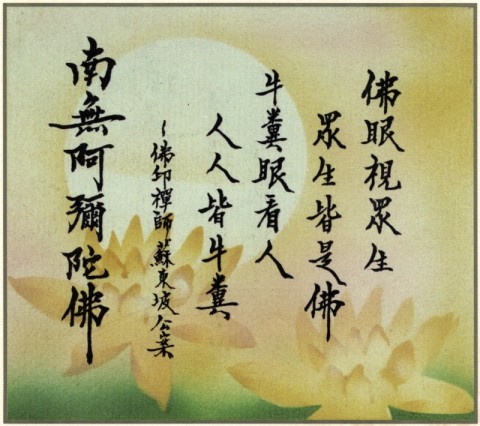 佛眼視眾生
眾生皆是佛
牛糞眼看人
人人皆牛糞
~佛印禪師.蘇東坡公案
南無阿彌陀佛